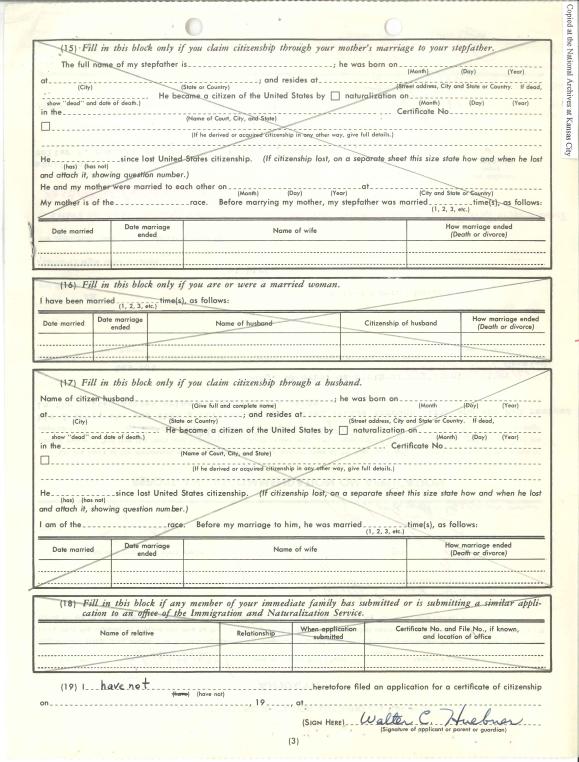 Copied at the National Archives at Kansas City
(15) Fill in this block only if you claim citizenship through your mother's marriage to your stepfather.
The full name of my stepfather is ; he was born on
(Month) (Day) (Year)
at ; and resides at
(City) (State or Country) (Street address, City and State or Country. If dead,
show "dead" and date of death.) He became a citizen of the United States by naturalization on
(Month) (Day) (Year)
in the Certificate No.
(Name of Court, City, and State)
(If he derived or acquired citizenship in any other way, give full details.)
He since lost United States citizenship. (If citizenship lost, on a separate sheet this size state how and when he lost
(has) (has not)
and attach it, showing question number.)
He and my mother were married to each other on at
(Month) (Day) (Year) (City and State or Country)
My mother is of the race. Before marrying my mother, my stepfather was married time(s), as follows:
(1, 2, 3, etc.)
Date married Date marriage ended Name of wife How marriage ended (Death or divorce)
(16) Fill in this block only if you are or were a married woman.
I have been married time(s), as follows:
(1, 2, 3, etc.)
Date married Date marriage ended Name of husband Citizenship of husband How marriage ended (Death or divorce)
(17) Fill in this block only if you claim citizenship through a husband.
Name of citizen husband ; he was born on
(Give full and complete name) (Month (Day) (Year)
at ; and resides at
(City) (State or Country) (Street address, City and State or Country. If dead,
show "dead" and date of death.) He became a citizen of the United States by naturalization on
(Month) (Day) (Year)
in the Certificate No
(Name of Court, City, and State)
(If he derived or acquired citizenship in any other way, give full details.)
He since lost United States citizenship. (If citizenship lost, on a separate sheet this size state how and when he lost
(has) (has not)
and attach it, showing question number.)
I am of the race. Before my marriage to him, he was married time(s), as follows:
(1, 2, 3, etc.)
Date married Date marriage ended Name of wife How marriage ended (Death or divorce)
(18) Fill in this block if any member of your immediate family has submitted or is submitting a similar appli-
cation to an office of the Immigration and Naturalization Service.
Name of relative Relationship When application submitted Certificate No. and File No., if known, and location of office
(19) I have not heretofore filed an application for a certificate of citizenship
(have) (have not)
on , 19 , at
(SIGN HERE) Walter C. Huebner
(Signature of applicant or parent or guardian)
(3)